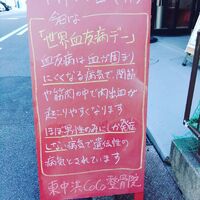 今日は
「世界血友病デー」
血友病は血が固まり
にくくなる病気で、関節
や筋肉の中で内出血が
起こりやすくなります
ほぼ男性のみにしか発症
しない病気で遺伝性の
病気とされています
東中浜CoCo整骨院